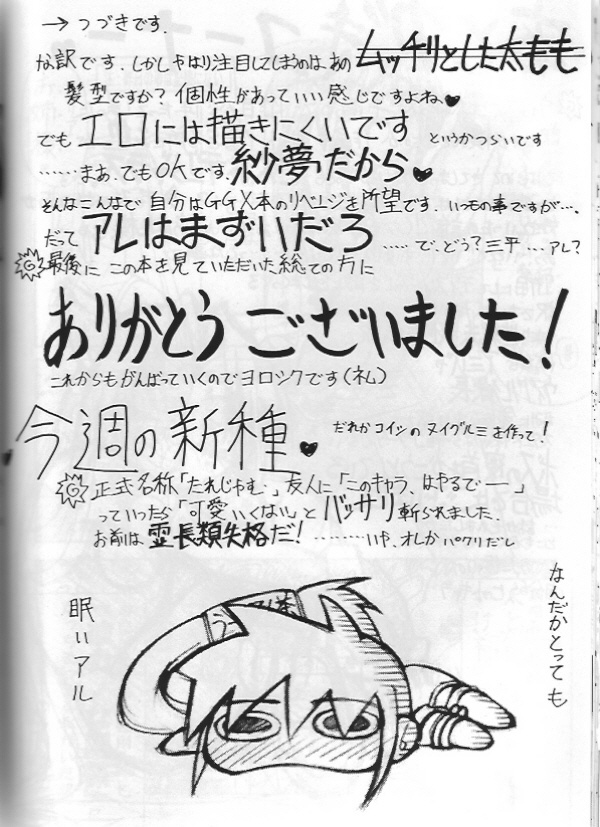 → つづきです.
な訳です.しかしやはり注目してしまうのは、あの ムッチリとした太もも
髪型ですか?個性があっていい感じですよね、♥
でも エロには描きにくいです というかつらいです
……まあ、でもOKです.紗夢だから♥
そんなこんなで 自分はGGX本のリベンジを所望です.いつもの事ですが….
だって アレはまずいだろ ……で、どう?三平…アレ?
最後に この本を見ていただいた総ての方に
ありがとう ございました!
これからもがんばっていくのでヨロシクです(礼)
今週の新種♥ だれかコイツのヌイグルミを作って!
正式名称「たれじゃむ」友人に「このキャラ、はやるでー」
っていったら「可愛いくない」とバッサリ斬られました、
お前は霊長類失格だ!………いや、オレがパクリだし
なんだかとっても
眠いアル